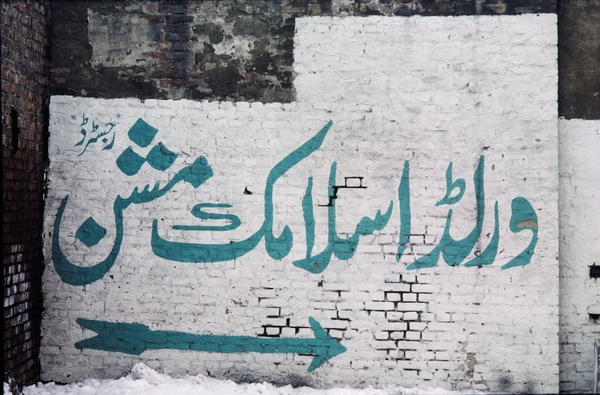 ورلڈ اسلامک مشن
"رجسٹرڈ"